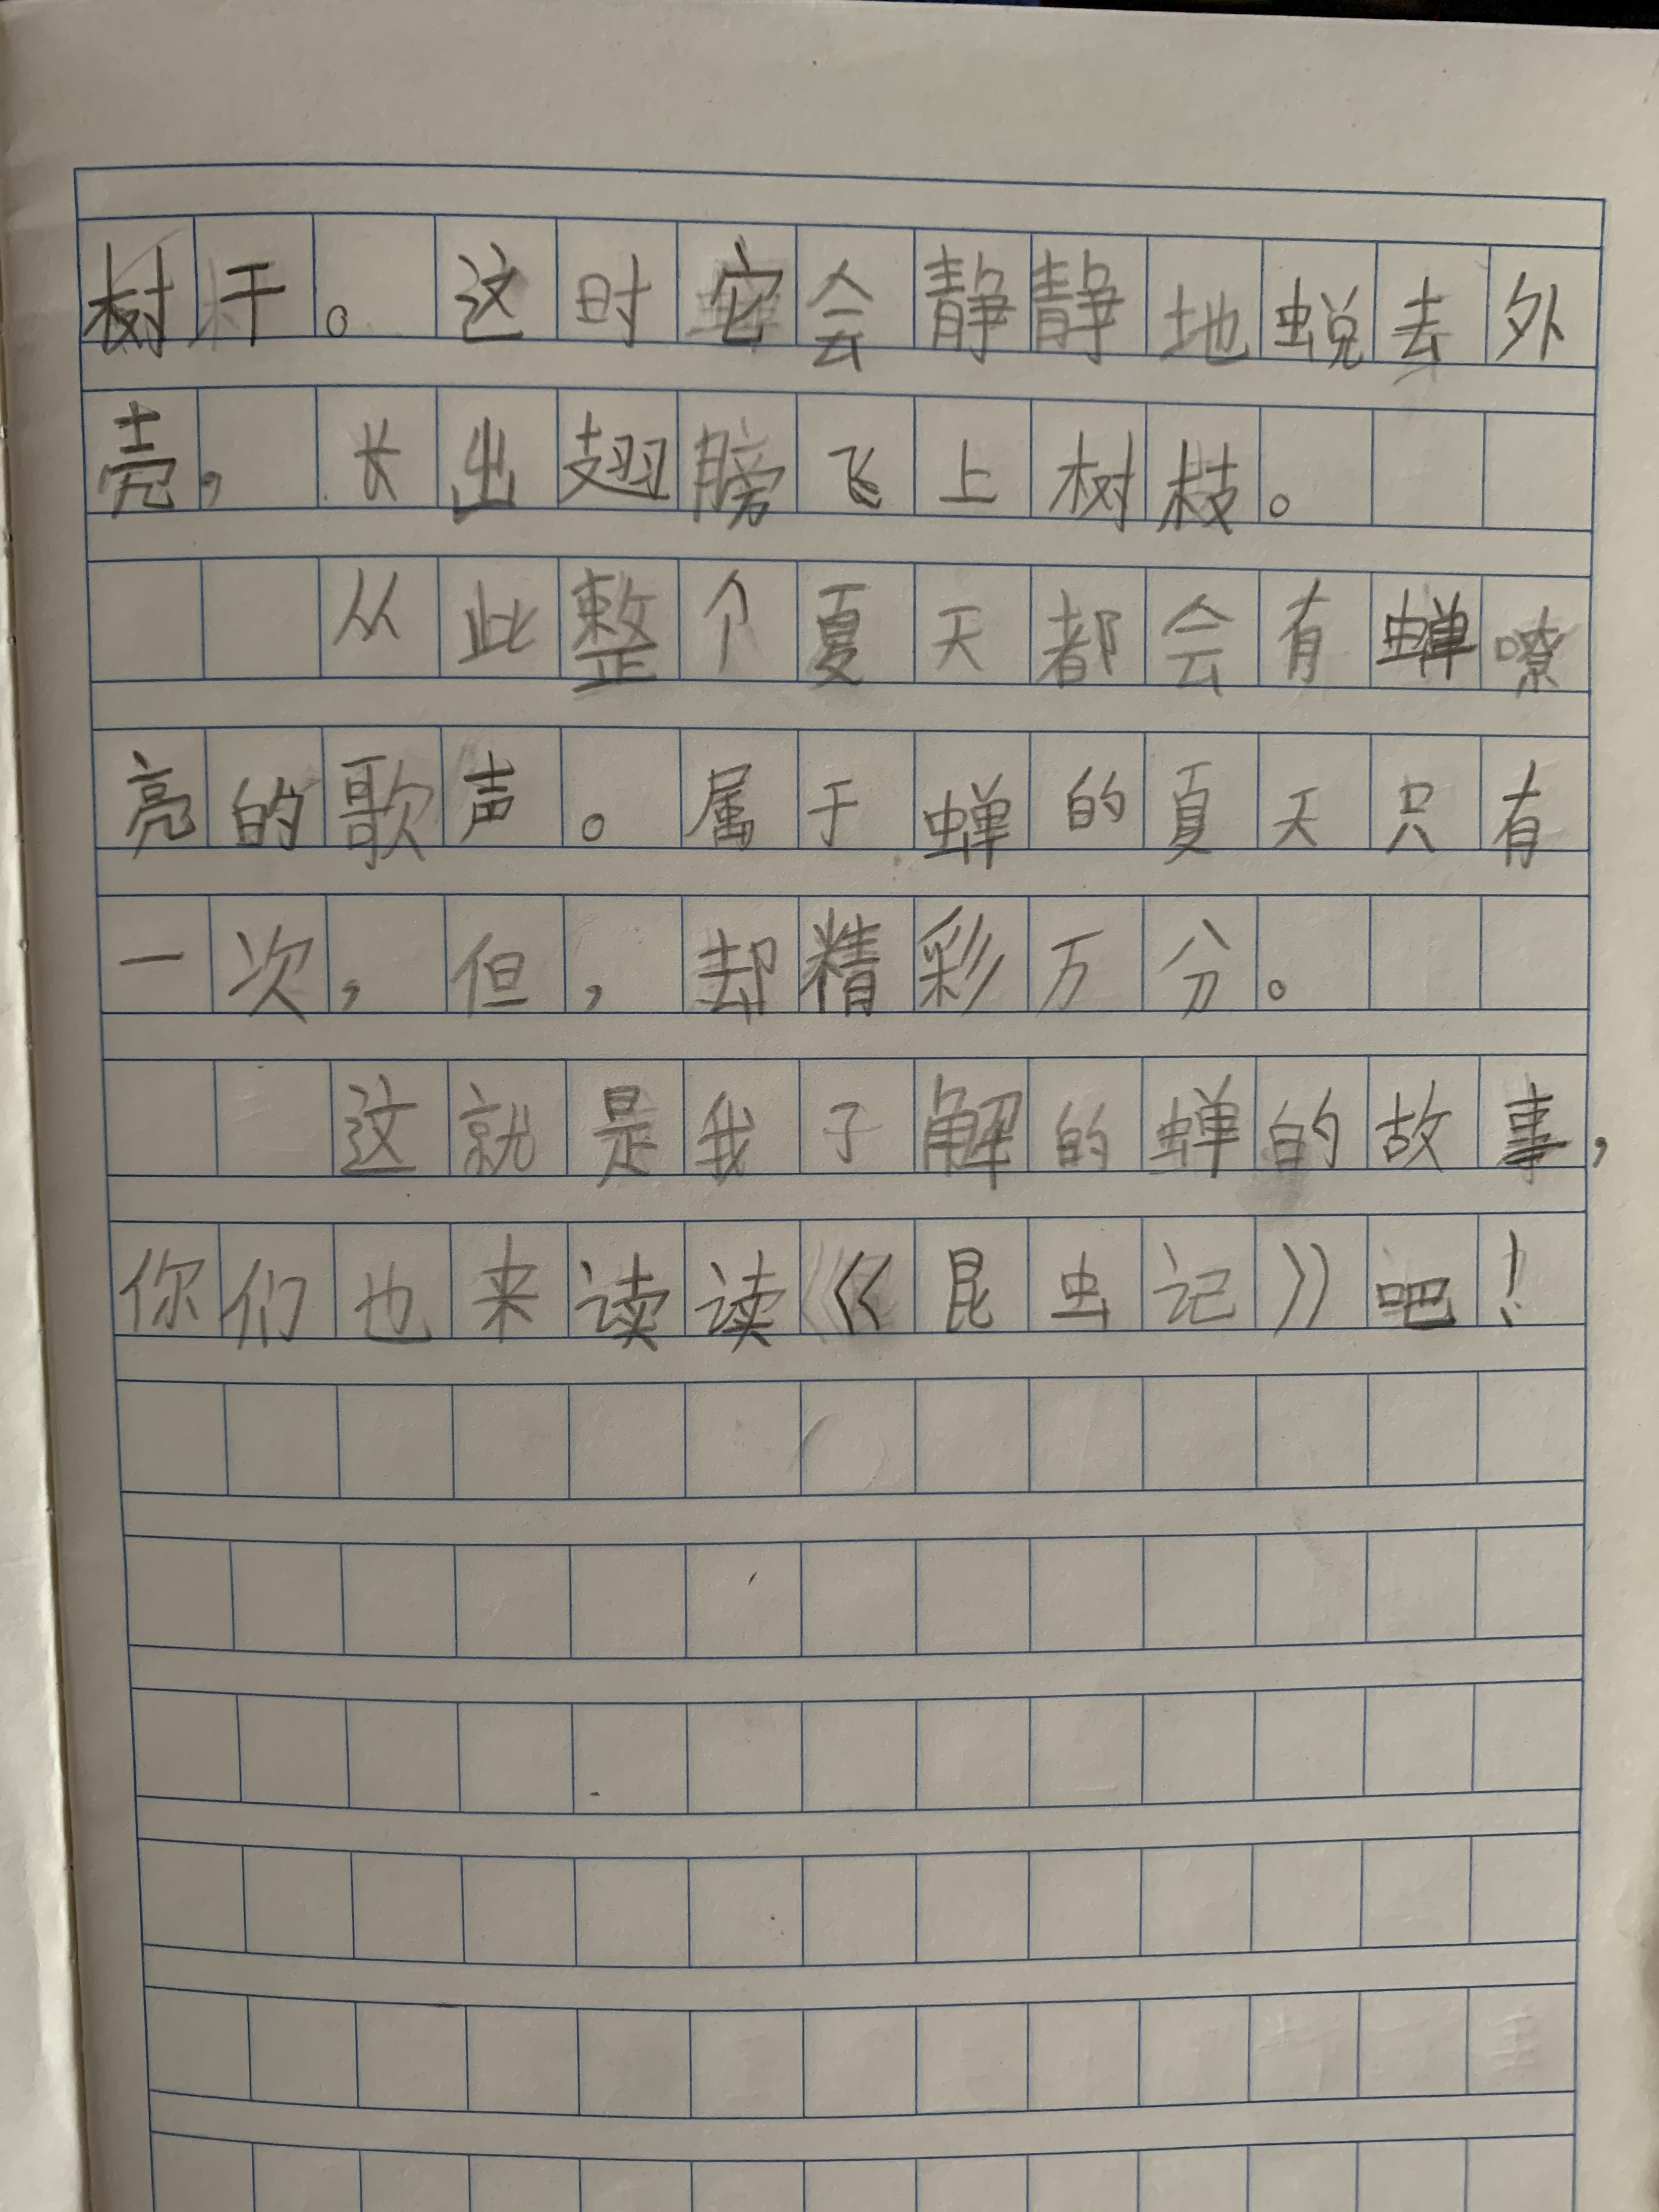 树干。这时它会静静地蜕去外
壳，长出翅膀飞上树枝。
从此整个夏天都会有蝉嘹
亮的歌声。属于蝉的夏天只有
一次，但，却精彩万分。
这就是我了解的蝉的故事，
你们也来读读《昆虫记》吧！